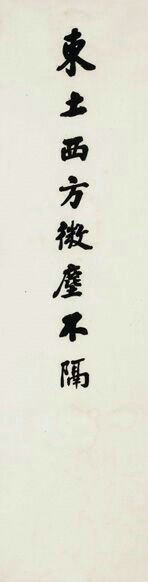 東土西方微塵不隔